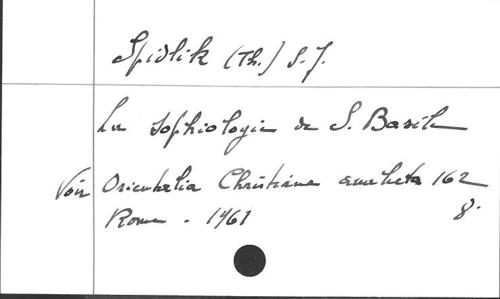 Spidlik (Th.) S.J.
La Sophiologie de S. Basile
Voir Orientalia Christiana analecta 162
Rome - 1961 8°